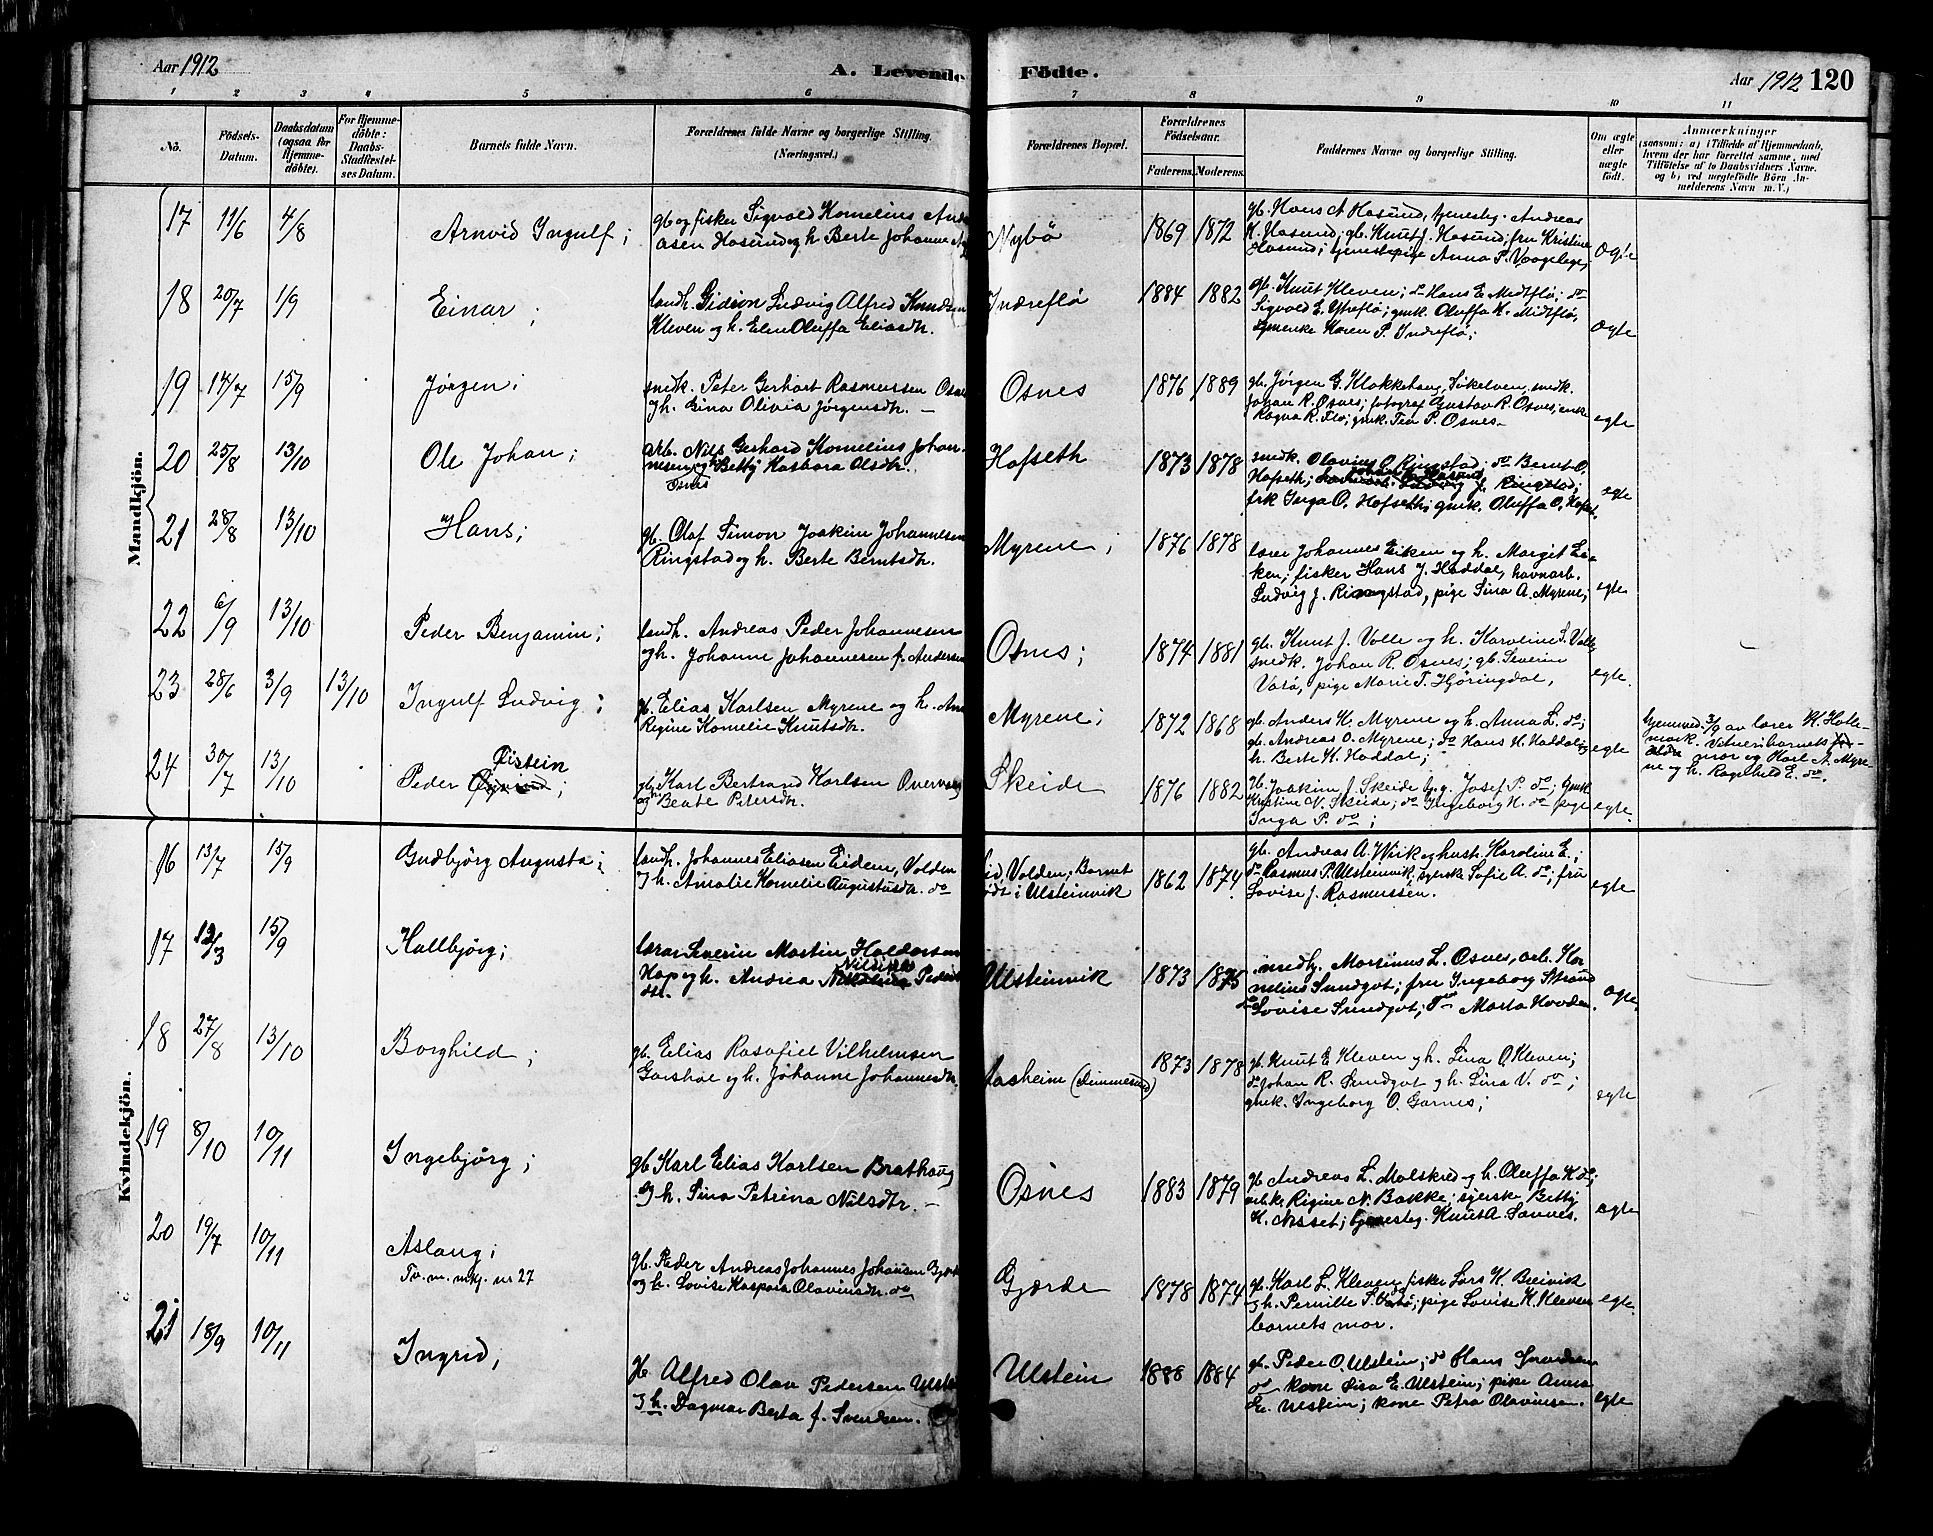 Aar 1912
A. Levende Födte.
Aar 1912 120
1 2 3 4 5 6 7 8 9 10 11
Nö.
Födsels-Datum.
Daabsdatum (ogsaa for Hjemme-döbte).
For Hjemme-döbte: Daabs-Stadfæstel-ses Datum.
Barnets fulde Navn.
Forældrenes fulde Navne og borgerlige Stilling. (Næringsvei.)
Forældrenes Bopæl.
Forældrenes Födselsaar.
Faderens. Moderens.
Faddernes Navne og borgerlige Stilling.
Om ægte eller uægte födt.
Anmærkninger
(saasom: a) i Tilfælde af Hjemmedaab,
hvem der har forrettet samme, med
Tilföielse af to Daabsvidners Navne.
og b) ved uægtefödte Börn An-
melderens Navn m. V.)
Mandkjön.
17 11/6 4/8 Arnvid Ingulf;
gb og fisker Sigvald Kornelius
asen Hasund og h Berte Johanne
Nybö 1869 1872
gb. Hans A Hasund, tjenesteg. Andreas
K. Hasund; gb. Knut J. Hasund; fru Kristine
Hasund; tjenestepige Anna P. Vaagelege;
egte
18 20/7 1/9 Einar;
landh. Gideon Ludvig Alfred Knudsen
Kleven og h. Elen Oluffa Eliasdtr.
Indreflö 1884 1882
gb. Knut Kleven; do Hans E. Midtflö; do
Sigvald E. Ytreflö; gmk. Oluffa K. Midtflö,
Karen P. Indreflö;
egte
19 14/7 15/9 Jørgen;
snedk. Peter Gerhart Rasmussen Osnes
og h. Gina Olivia Jörgensdtr. –
Osnes 1876 1889
gb. Jörgen G. Klokkehaug, Sökelven, snedk.
Johan R. Osnes; fotograf Gustav R. Osnes; enke
Ragna R. Flö; gmk. Tea P. Osnes.
egte
20 25/8 13/10 Ole Johan;
arb. Nils Gerhard Kornelius Johan-
nesen og h Betty Barbara Olsdtr.
Osnes
Hofseth 1873 1878
snedk. Olavius O. Ringstad; do Bernt O.
Hofseth; Ludvig J. Ringstad;
frk Inga O. Hofseth; gmk. Oluffa O. Hofset.
egte
21 28/8 13/10 Hans;
gb. Olaf Simon Joakim Johannesen
Ringstad og h. Berte Berntsdtr.
Myrene; 1876 1878
lærer Johannes Eiken og h. Margit Ei-
ken; fisker Hans J. Haddal, havnarb.
Ludvig J. Ringstad, pige Sina A. Myrene;
egte
22 6/9 13/10 Peder Benjamin;
landh. Andreas Peder Johannesen
og h. Johanne Johannesen f. Andersen
Osnes; 1874 1881
gb. Knut J. Volle og h. Karoline S. Volle
snedk. Johan R. Osnes; gb. Severin
Vatö, pige Marie T. Hjöringdal,
egte.
23 28/6 3/9 13/10 Ingulf Ludvig;
gb. Elias Karlsen Myrene og h. Ane
Regine Kornelie Knutsdtr.
Myrene; 1872 1868
gb. Anders K. Myrene og h. Anna L. do;
gb. Andreas O. Myrene; do Hans H. Haddal og
h. Berte K. Haddal;
egte
Hjemmed. 3/9 av lærer
mark. Vitner: barnets
mor og Karl A. Myre
ne og h. Ragnhild E. do.
24 30/7 13/10 Øistein
Peder Øyvind;
gb. Karl Bertrand Karlsen
og h Beate Petersdtr.
Skeide 1876 1882
Joakim J. Skeide Josef P. do; gmk
Kristine N. Skeide; do Ingeborg H. do pige
Inga P. do;
egte.
Kvindekjön.
16 13/7 15/9 Gudbjörg Augusta;
landh. Johannes Eliasen Eidem, Volden
og h. Amalie Kornelie Augustusdtr. do
Eid Volden; Barnet
födt i Ulsteinvik
1862 1874
gb. Andreas A. Wiik og hust. Karoline E.;
do Rasmus P. Ulsteinvik; syerske Sofie A. do; fru
Lovise J. Rasmussen.
egte
17 12/3 15/9 Hallbjörg;
lærer Severin Martin Haldorsen
Hap og h. Andrea Nilsina Peders
dtr.
Ulsteinvik 1873 1875
snedk. Martinus L. Osnes, arb. Kor
nelius Sundgot; fru Ingeborg Strand
do Lovise Sundgot; do Marta Hovden.
egte.
18 27/8 13/10 Borghild;
gb. Elias Rasafiel Vilhelmsen
Garshol og h. Johanne Johannesdtr.
Aasheim (Dimmesund) 1873 1878
gb. Knut E. Kleven og h. Lina O. Kleven;
do Johan R. Sundgot og h. Lina V. do;
gmk. Ingeborg O. Garnes;
egte
19 8/10 10/11 Ingebjörg;
gb Karl Elias Karlsen Brathaug
og h. Sina Petrina Nilsdtr. –
Osnes 1883 1879
gb Andreas L. Malskred og h. Oluffa K do;
enke Rigine N. Bakke; syerske Betty
H. Nesset; tjenesteg. Knut A. Sannes.
egte
20 19/7 10/11 Aslaug;
Tv. m. mkj. nr 27
gb. Peder Andreas Johannes Johansen
og h. Lovise Kaspara Olavinsdtr. do
Gjerde 1878 1874
gb. Karl L. Kleven, fisker Lars K. Breivik
og h. Pernille S. Vatö; pige Lovise K. Kleven
barnets mor.
egte
21 18/9 10/11 Ingrid,
gb. Alfred Olav Pedersen Ulstein
og h. Dagmar Berta f. Svendsen.
Ulstein 1888 1884
gb. Peder O. Ulstein; do Hans Svendsen
do kone Lisa E. Ulstein; pike Anna
E. Ulstein; kone Petra Olavinsen.
egte